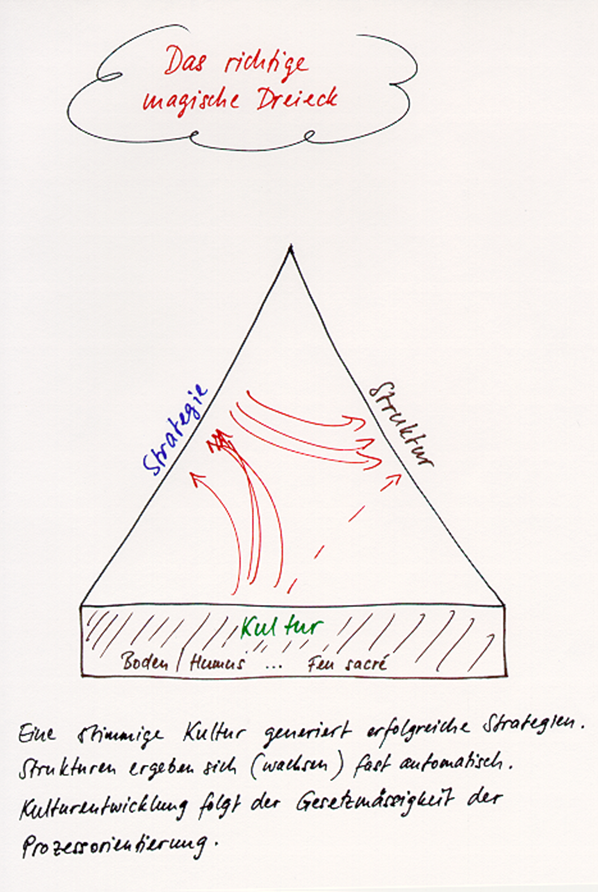 Das richtige
magische Dreieck
Strategie
Struktur
Kultur
Boden / Humus ... Feu sacré
Eine stimmige Kultur generiert erfolgreiche Strategien.
Strukturen ergeben sich (wachsen) fast automatisch.
Kulturentwicklung folgt der Gesetzmässigkeit der
Prozessorientierung.